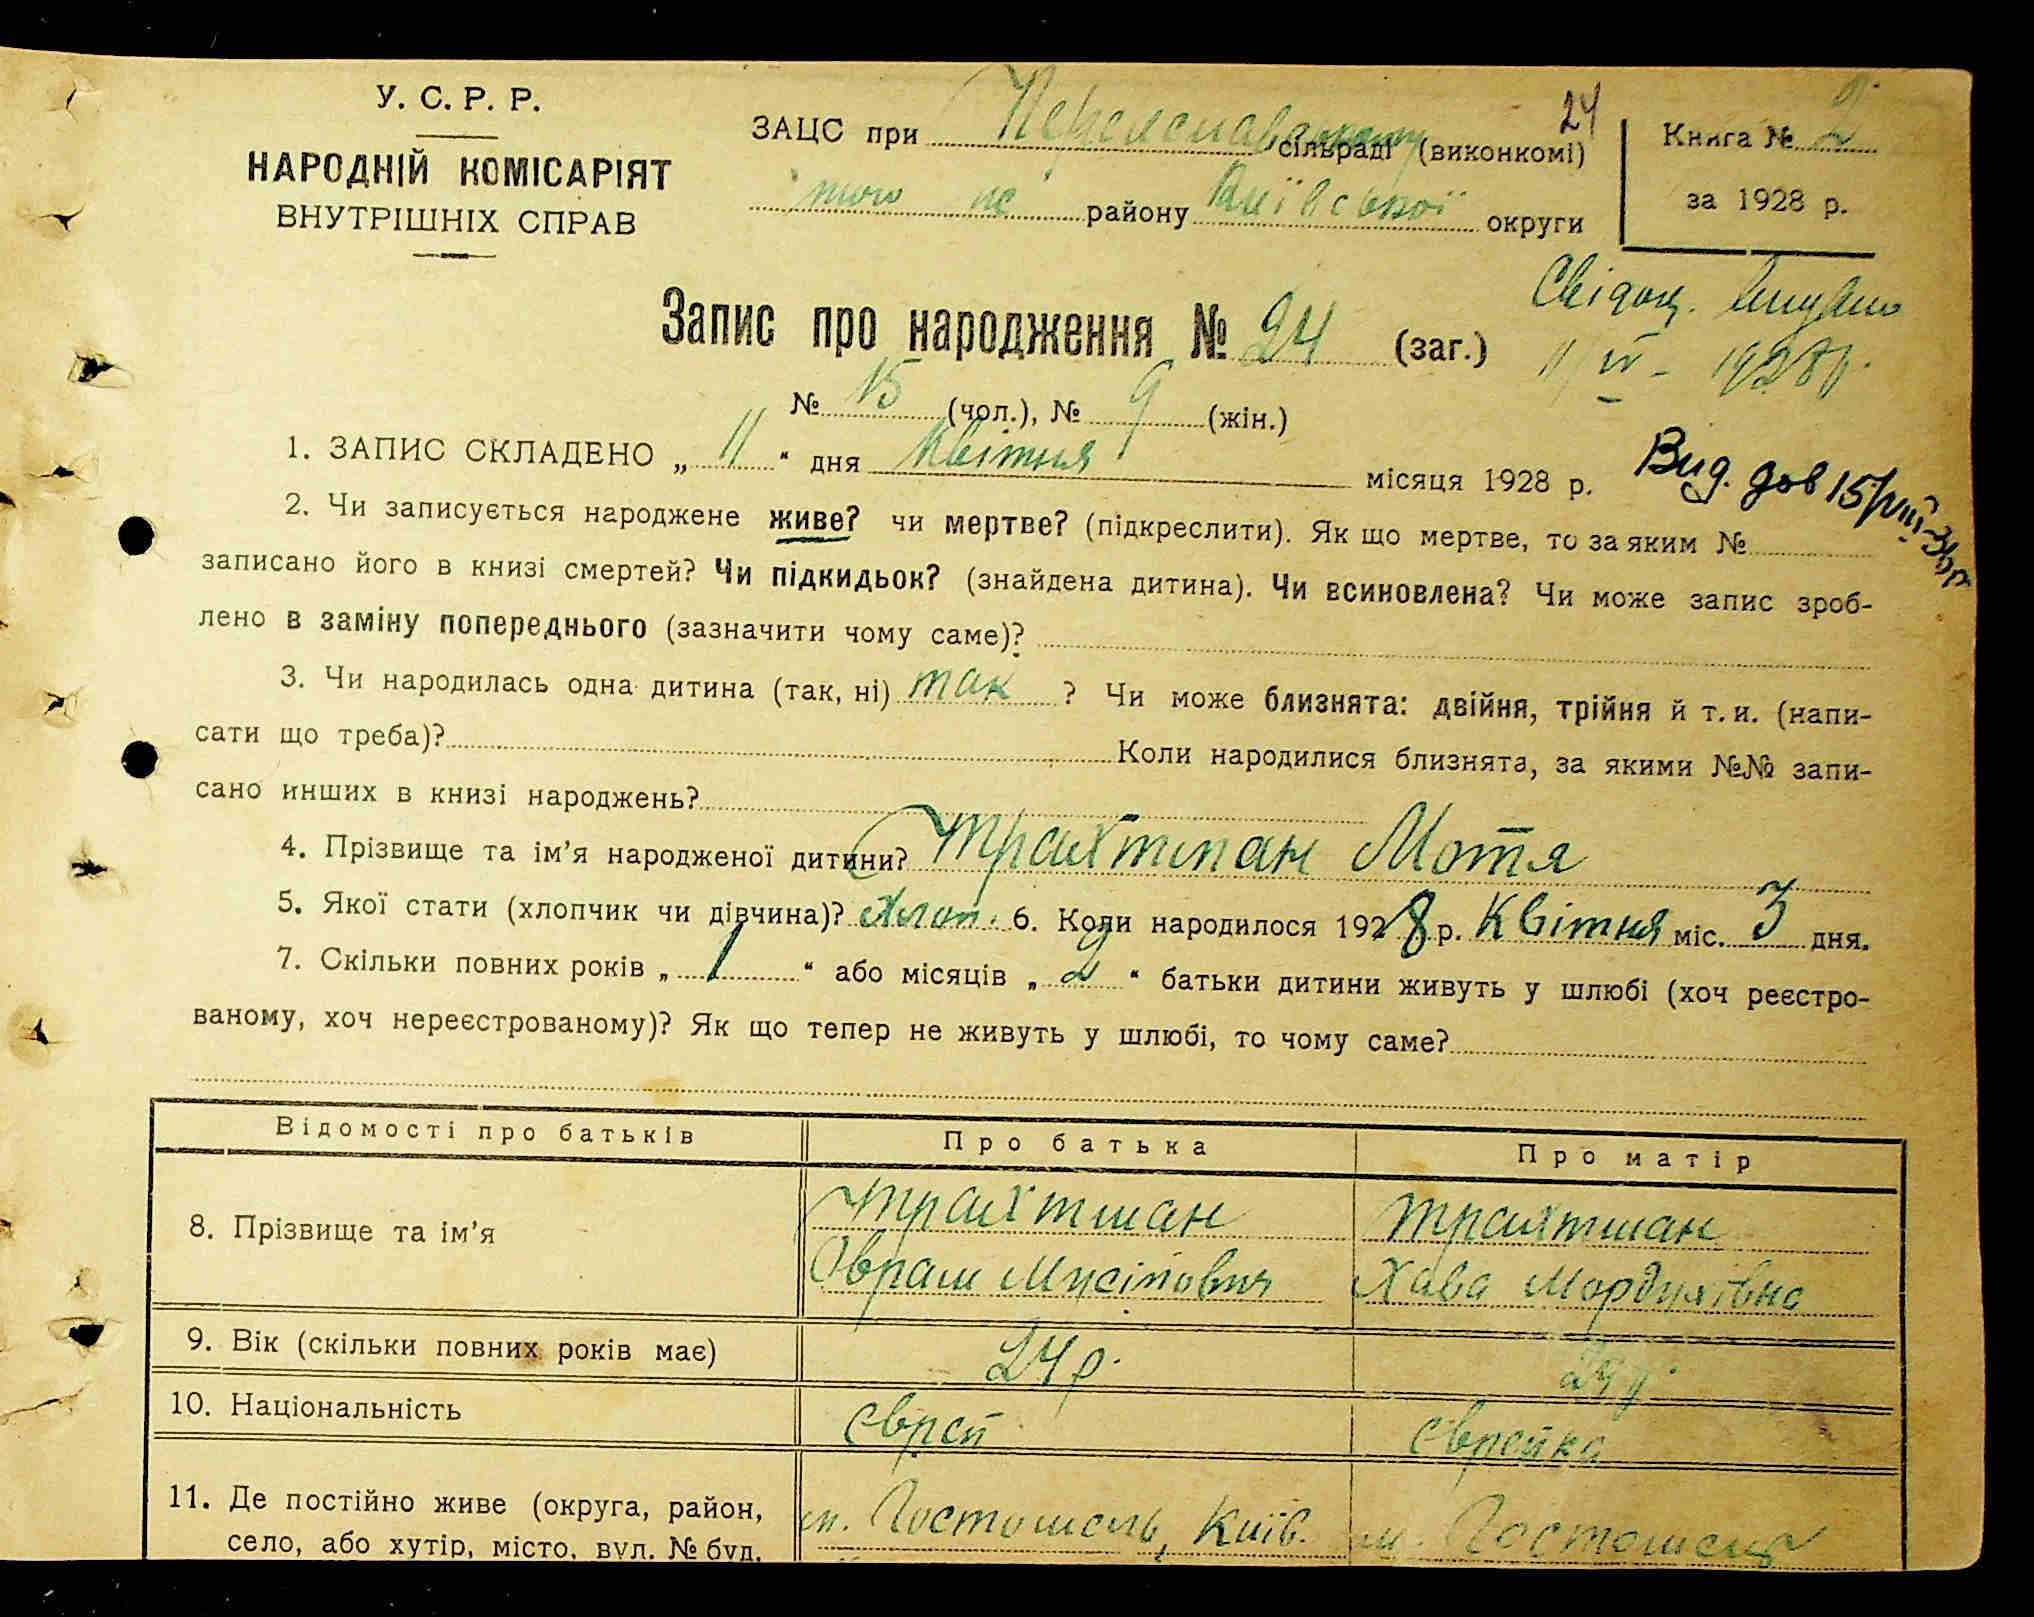 У. С. Р. Р.
НАРОДНІЙ КОМІСАРІЯТ
ВНУТРІШНІХ СПРАВ
24
ЗАЦС при сільраді (виконкомі)
того же району Київської округи
Книга № 2
за 1928 р.
Запис про народження № 24 (заг.)
Свідоц. видано
11/IV - 1928 р.
№ 15 (чол.), № 9 (жін.)
1. ЗАПИС СКЛАДЕНО „ 11 “ дня Квітня місяця 1928 р.
Вид. дов 15/VIII-36р
2. Чи записується народжене живе? чи мертве? (підкреслити). Як що мертве, то за яким №
записано його в книзі смертей? Чи підкидьок? (знайдена дитина). Чи всиновлена? Чи може запис зроб-
лено в заміну попереднього (зазначити чому саме)?
3. Чи народилась одна дитина (так, ні) так ? Чи може близнята: двійня, трійня й т. и. (напи-
сати що треба)? Коли народилися близнята, за якими №№ запи-
сано инших в книзі народжень?
4. Прізвище та ім’я народженої дитини? Трахтман Мотя
5. Якої стати (хлопчик чи дівчина)? Хлоп. 6. Коли народилося 1928 р. Квітня міс. 3 дня.
7. Скільки повних років „ 1 “ або місяців „ 2 “ батьки дитини живуть у шлюбі (хоч реєстро-
ваному, хоч нереєстрованому)? Як що тепер не живуть у шлюбі, то чому саме?
Відомості про батьків Про батька Про матір
8. Прізвище та ім’я Трахтман Трахтман
Аврам Мусійович Хава Мордухівна
9. Вік (скільки повних років має) 24 р. 24 р.
10. Національність єврей єврейка
11. Де постійно живе (округа, район, м. Гостомель, Київ. м. Гостомель
село, або хутір, місто, вул. № буд.